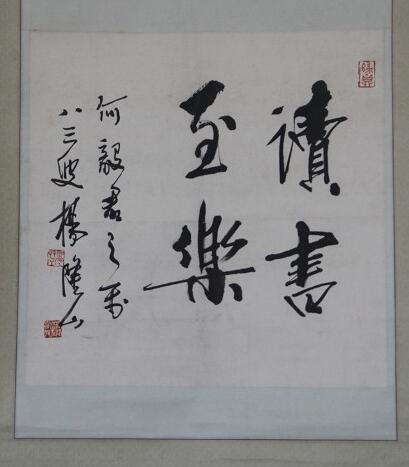 讀書
至樂
何毅君之
八三叟楊隆山